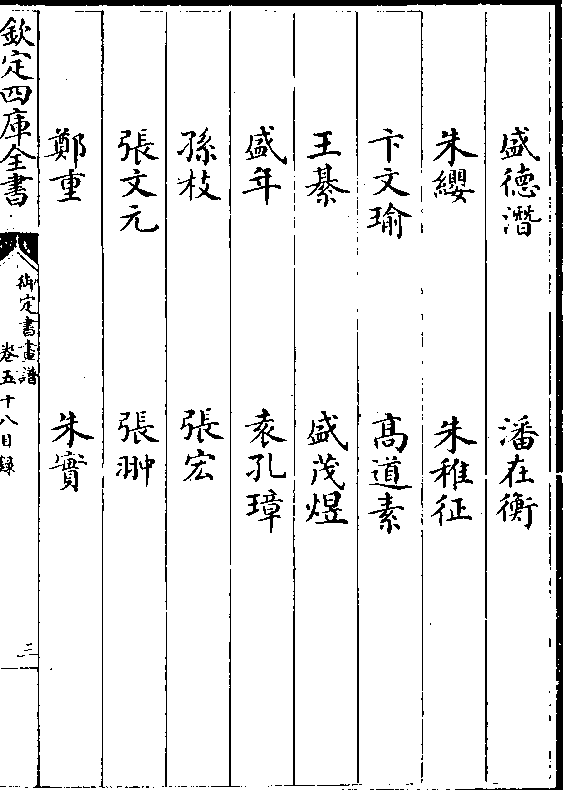 盛德潛　潘在衡
朱纓　朱稚征
卞文瑜　髙道素
王綦　盛茂燁
盛年　袁孔璋
孫枝　張宏
張文元　張翀
鄭重　朱實
欽定四庫全書
御定書畫譜
卷五十八目録
三